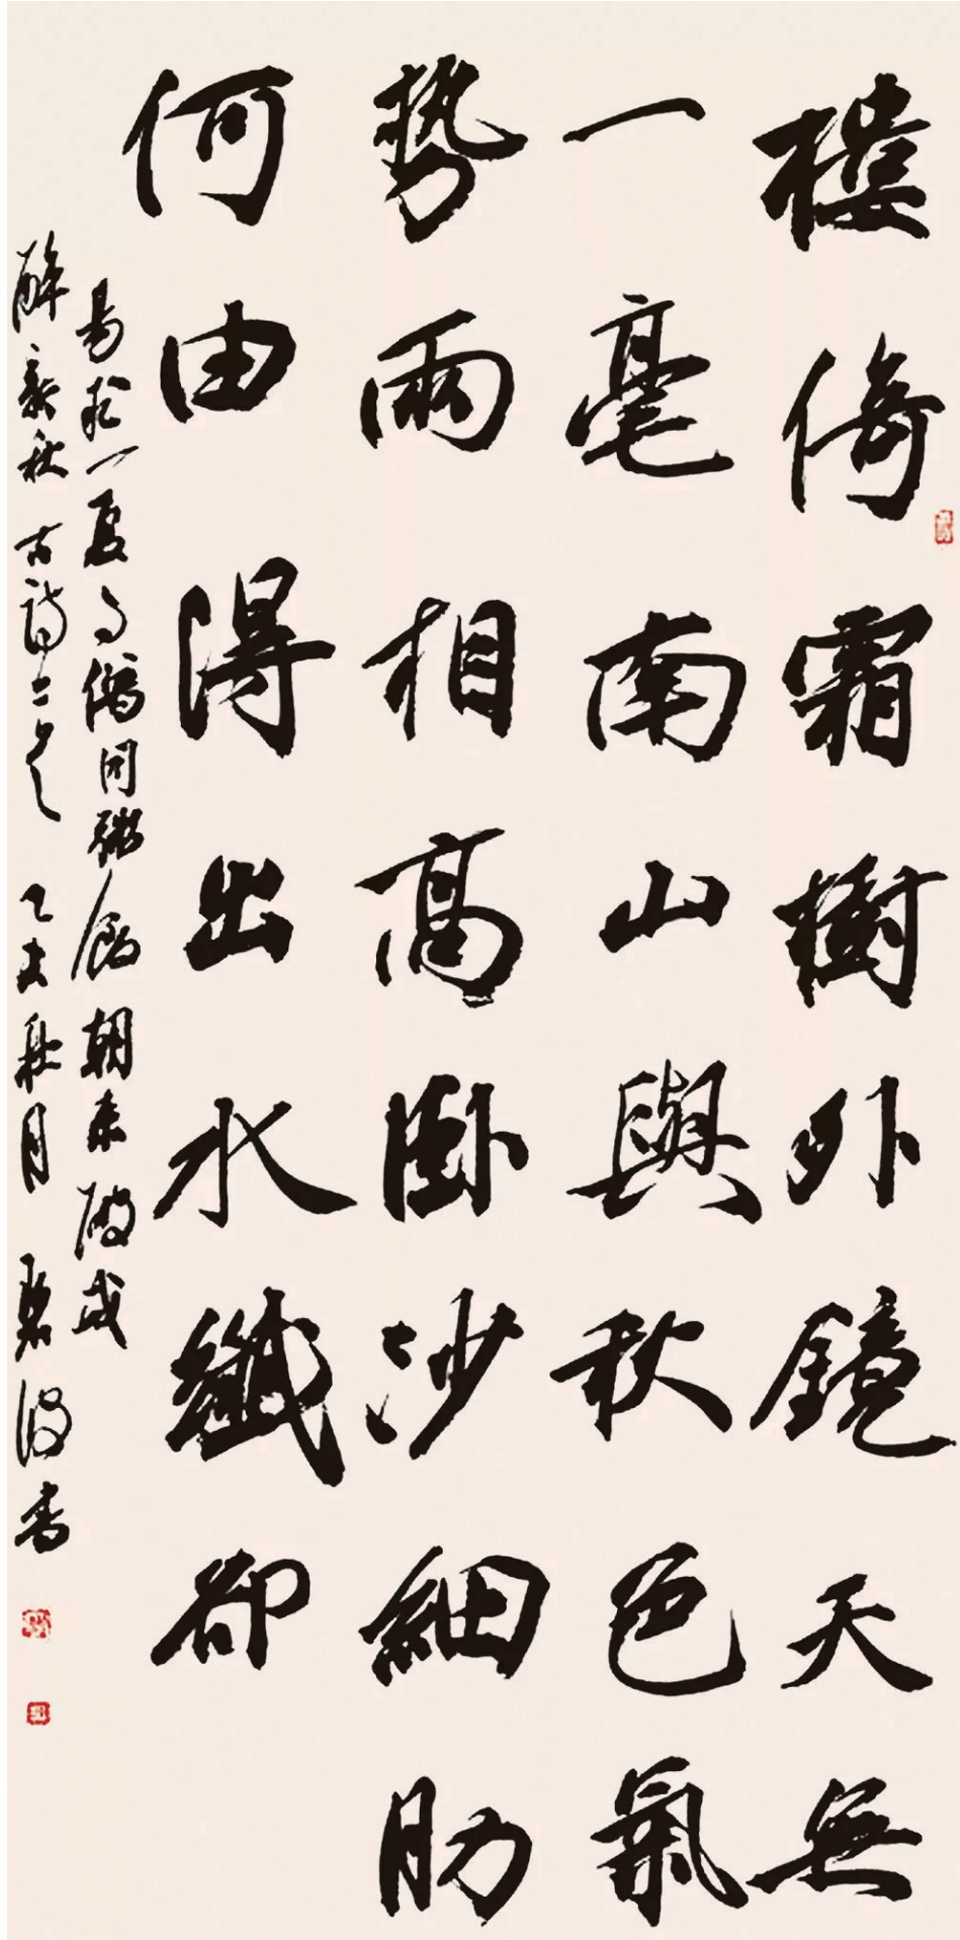 樓倚霜樹外鏡天無
一毫南山與秋色氣
勢兩相高卧沙細肋
何由得出水纖卻
易求一夏与僧同粥飯朝来破戒
醉新秋 古詩二首 乙未秋月 碧波書